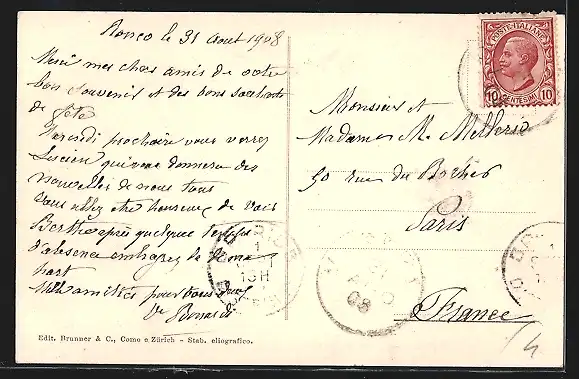 Ronco le 31 Aout 1908
Merci mes chers amis de votre
bon souvenir et des bons souhaits
de fête
Vendredi prochain vous verrez
Lucien qui vous donnera des
nouvelles de nous tous
Vous allez être heureux de voir
Berthe après quelque temps
d'absence embrassez de
part
Mille amitiés pour tous
Vve Bonardi
Edit. Brunner & C., Como e Zürich - Stab. eliografico.
POSTE ITALIANE
10 CENTESIMI 10
Monsieur et
Madame M. Mellerio
50 rue du Bathes
Paris
France
13H
08
4